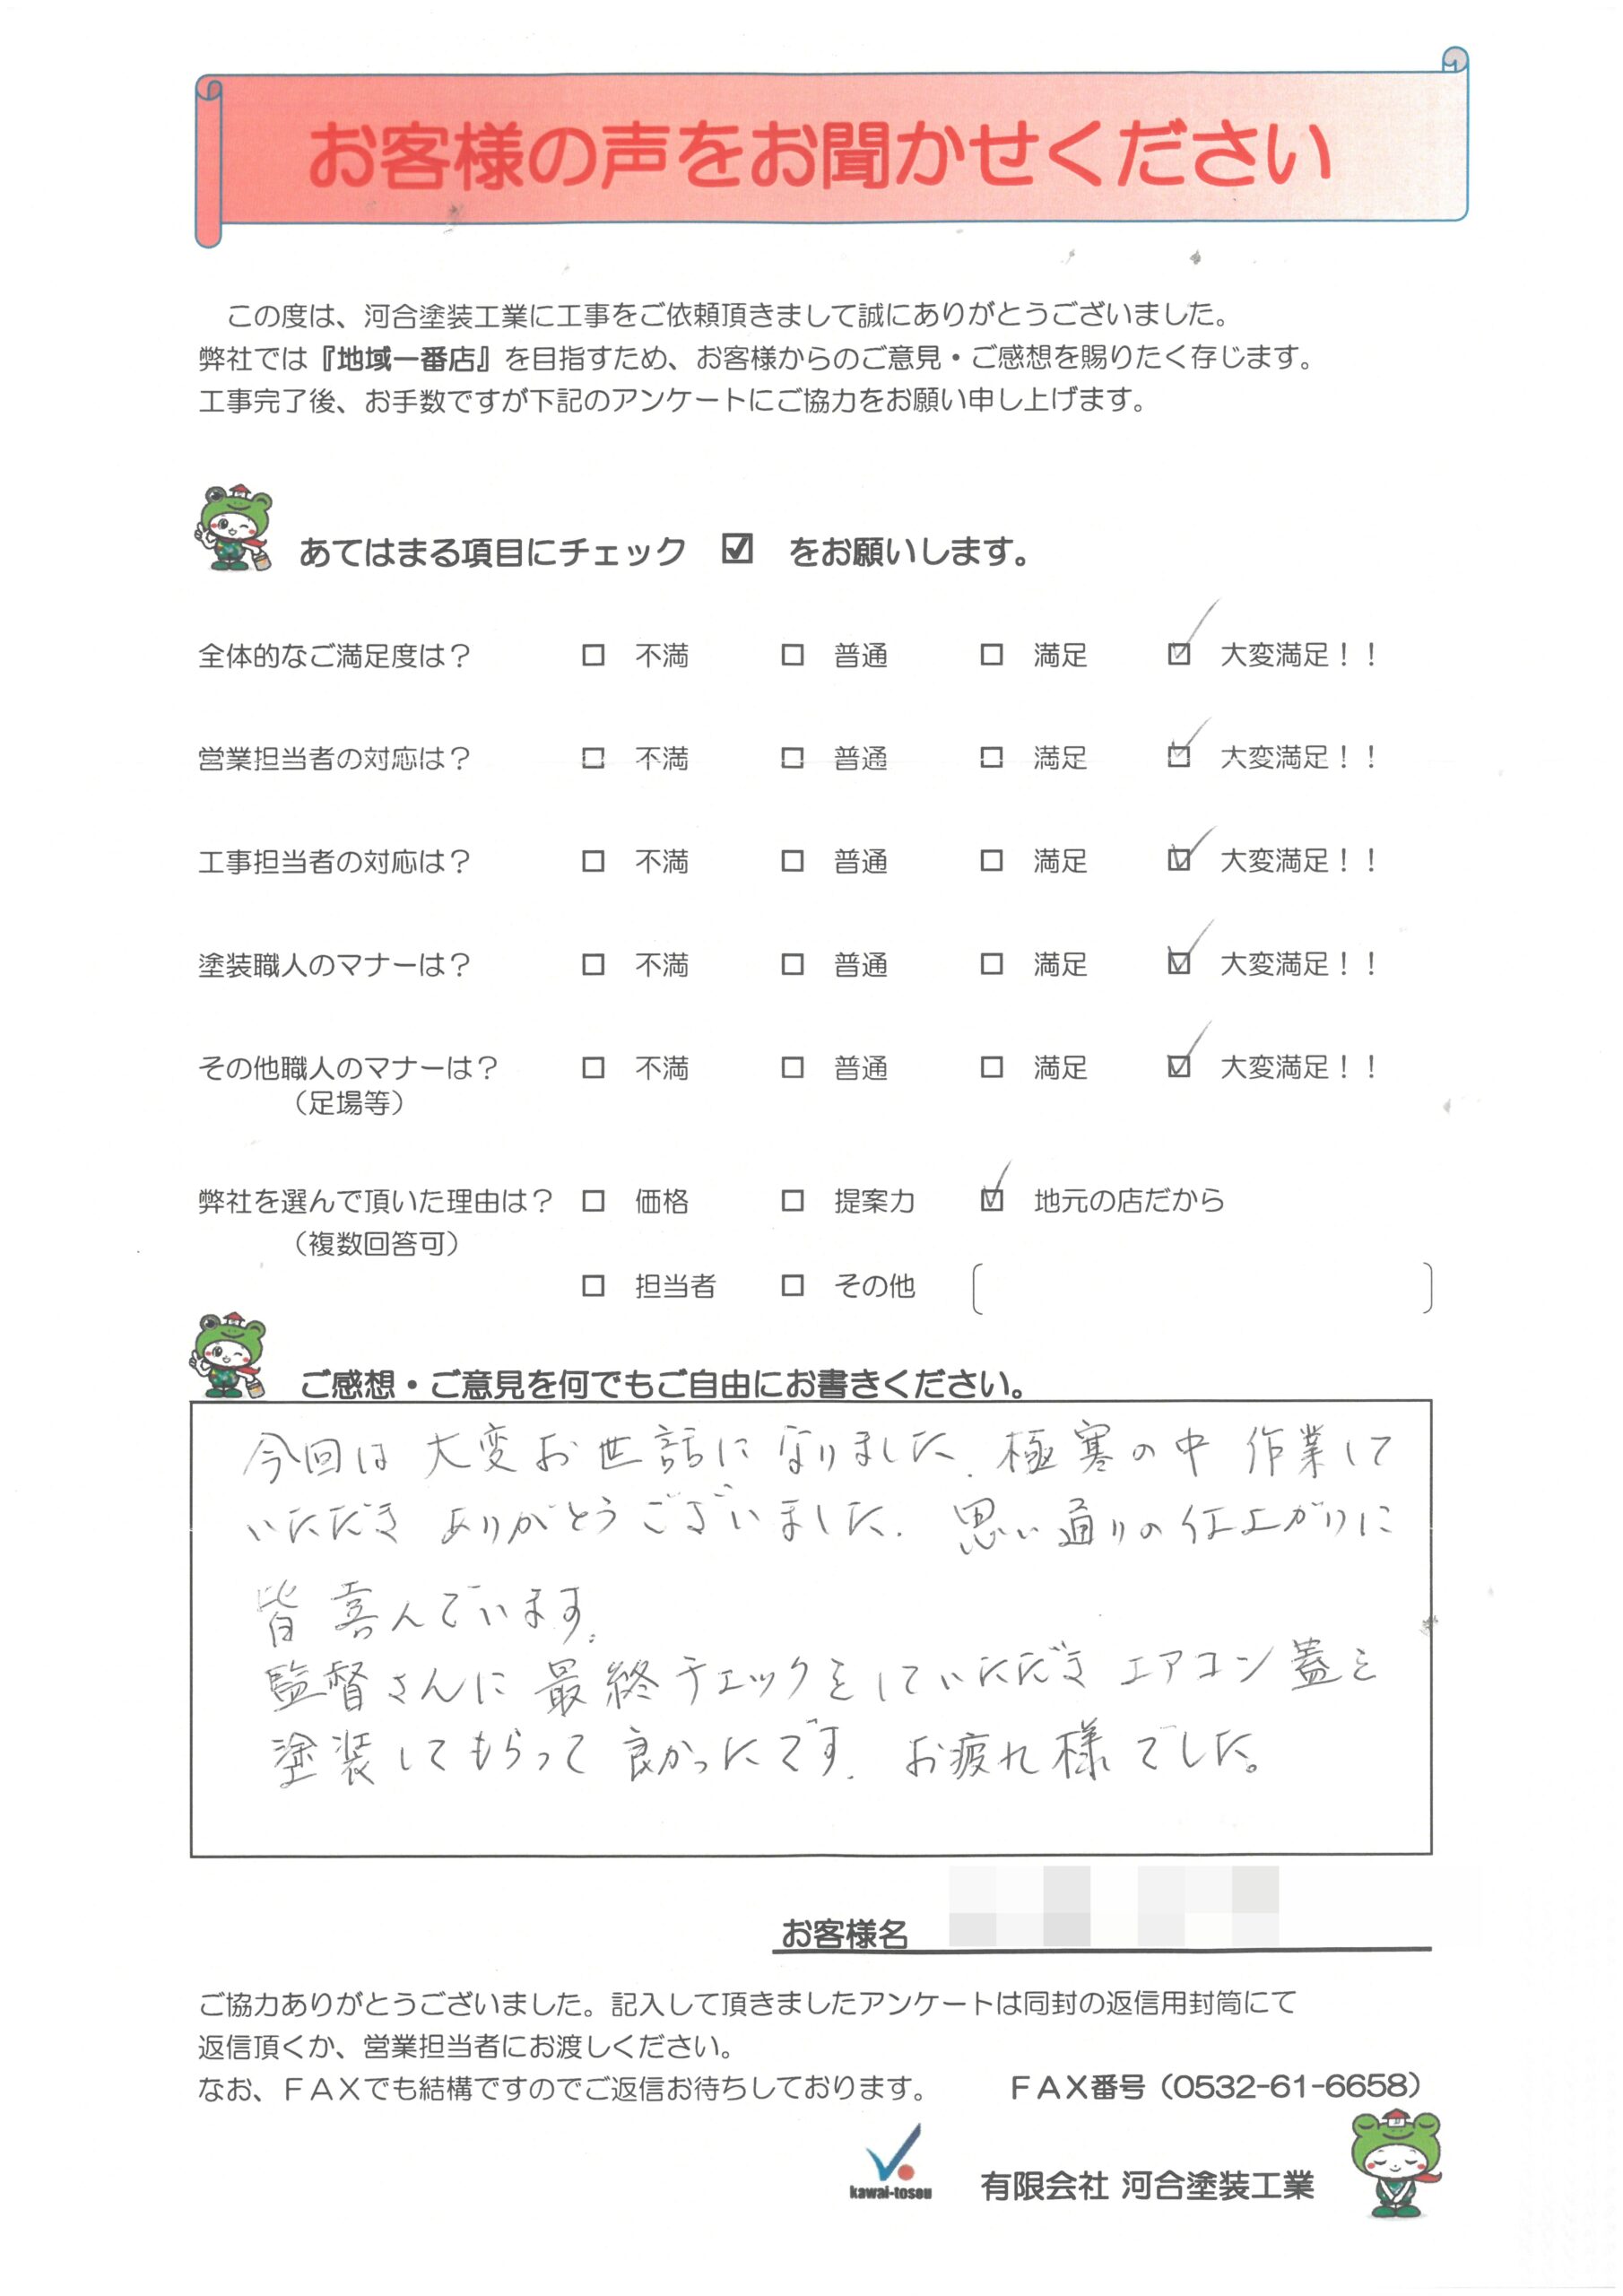 お客様の声をお聞かせください
この度は、河合塗装工業に工事をご依頼頂きまして誠にありがとうございました。
弊社では『地域一番店』を目指すため、お客様からのご意見・ご感想を賜りたく存じます。
工事完了後、お手数ですが下記のアンケートにご協力をお願い申し上げます。
あてはまる項目にチェック ☑ をお願いします。
全体的なご満足度は？ □ 不満 □ 普通 □ 満足 ☑ 大変満足！！
営業担当者の対応は？ □ 不満 □ 普通 □ 満足 ☑ 大変満足！！
工事担当者の対応は？ □ 不満 □ 普通 □ 満足 ☑ 大変満足！！
塗装職人のマナーは？ □ 不満 □ 普通 □ 満足 ☑ 大変満足！！
その他職人のマナーは？ □ 不満 □ 普通 □ 満足 ☑ 大変満足！！
（足場等）
弊社を選んで頂いた理由は？ □ 価格 □ 提案力 ☑ 地元の店だから
（複数回答可）
□ 担当者 □ その他 〔 〕
ご感想・ご意見を何でもご自由にお書きください。
今回は 大変お世話になりました. 極寒の中 作業して
いただき ありがとうございました. 思い通りの仕上がりに
皆 喜んでいます.
監督さんに 最終チェックをしていただき エアコン蓋を
塗装してもらって 良かったです. お疲れ様でした。
お客様名
ご協力ありがとうございました。記入して頂きましたアンケートは同封の返信用封筒にて
返信頂くか、営業担当者にお渡しください。
なお、ＦＡＸでも結構ですのでご返信お待ちしております。 ＦＡＸ番号（0532-61-6658）
kawai-tosou 有限会社 河合塗装工業